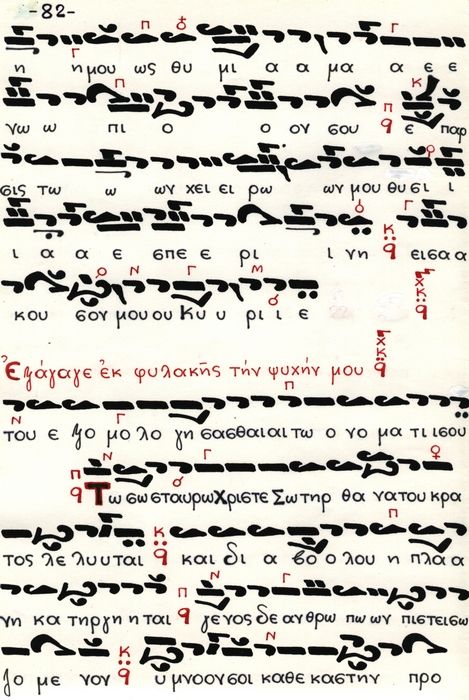 -82-
η η μου ως θυ μι α α μα α ε ε
νω ω πι ο ο ου σου ε παρ
σις τω ω ων χει ει ρω ων μου θυ σι ι
ι α α ε σπε ε ρι ι νη εισα α
κου σον μου ου Κυ υ ρι ι ε
Ἐξάγαγε ἐκ φυλακῆς τήν ψυχήν μου
του ε ξο μο λο γη σασθαι αι τω ο νο μα τι ι σου
Τω σω σταυρω Χριστε Σωτηρ θα να του κρα
τος λε λυ υται και δι α βο ο λου η πλα α
νη κα τηργη ηται γενος δε ανθρω πω ων πιστει σω
ζο με νον υ μνοον σοι καθ ε καστην προ